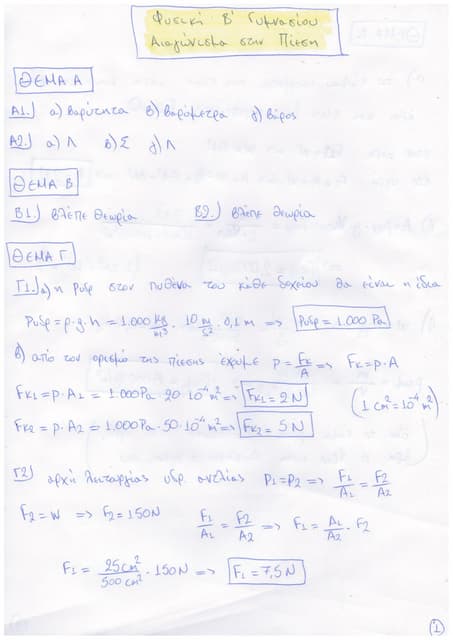 Φυσική Β' Γυμνασίου
Διαγώνισμα στην Πίεση
ΘΕΜΑ Α
Α1.) α) βαρύτητα β) βαρόμετρα γ) βάρος
Α2.) α) Λ β) Σ γ) Λ
ΘΕΜΑ Β
Β1.) βλέπε θεωρία Β2.) βλέπε θεωρία
ΘΕΜΑ Γ
Γ1.) α) η Ρυδρ στον πυθένα του κάθε δοχείου θα είναι η ίδια
Ρυδρ = ρ·g·h = 1.000 kg/m³ · 10 m/s² · 0,1 m => Ρυδρ = 1.000 Pa
β) από τον ορισμό της πίεσης έχουμε P = Fκ/A => Fκ = P·A
Fκ1 = P·A1 = 1.000 Pa · 20·10⁻⁴ m² => Fκ1 = 2 N (1 cm² = 10⁻⁴ m²)
Fκ2 = P·A2 = 1.000 Pa · 50·10⁻⁴ m² => Fκ2 = 5 N
Γ2) αρχή λειτουργίας υδρ. αντλίας P1 = P2 => F1/A1 = F2/A2
F2 = W => F2 = 150 N F1/A1 = F2/A2 => F1 = A1/A2 · F2
F1 = 25 cm²/500 cm² · 150 N => F1 = 7,5 N
1